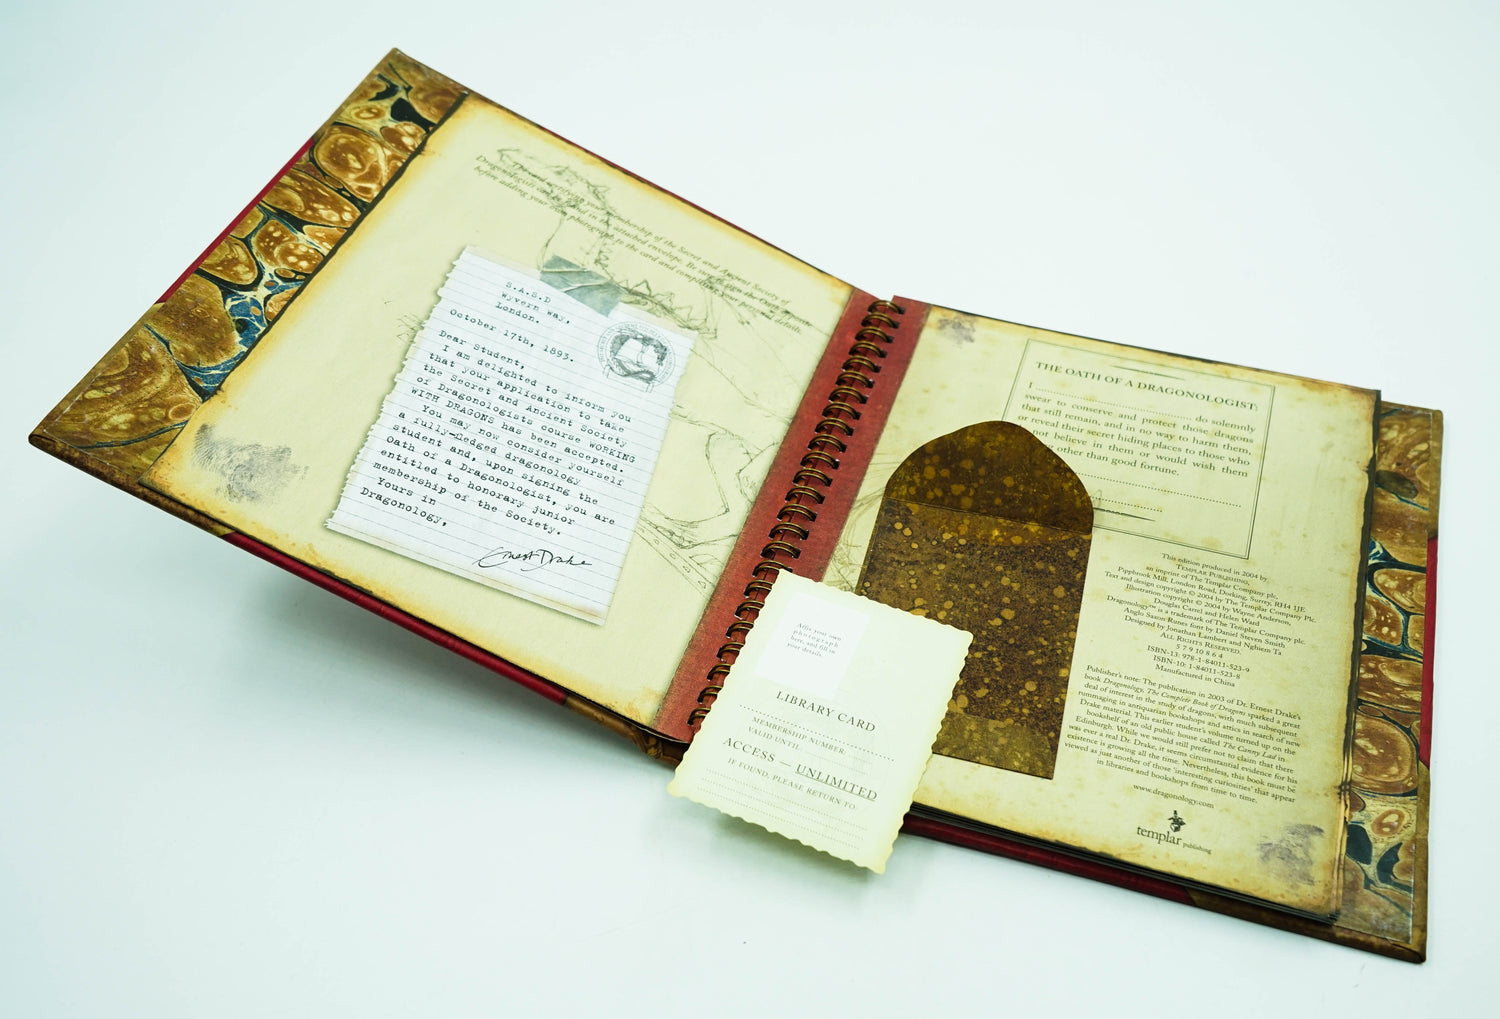 The card certifying your membership of the Secret and Ancient Society of
Dragonologists can be found in the attached envelope. Be sure to sign the Oath opposite
before adding your own photograph to the card and completing your personal details.
S.A.S.D
Wyvern Way,
London.
October 17th, 1893.
Dear Student,
I am delighted to inform you
that your application to take
the Secret and Ancient Society
of Dragonologists course WORKING
WITH DRAGONS has been accepted.
You may now consider yourself
a fully-fledged dragonology
student and, upon signing the
Oath of a Dragonologist, you are
entitled to honorary junior
membership of the Society.
Yours in
Dragonology,
Ernest Drake
THE OATH OF A DRAGONOLOGIST:
I do solemnly
swear to conserve and protect those dragons
that still remain, and in no way to harm them,
or reveal their secret hiding places to those who
not believe in them or would wish them
other than good fortune.
This edition produced in 2004 by
TEMPLAR PUBLISHING,
an imprint of The Templar Company plc,
Pippbrook Mill, London Road, Dorking, Surrey, RH4 1JE
Text and design copyright © 2004 by The Templar Company Plc.
Illustration copyright © 2004 by Wayne Anderson,
Douglas Carrel and Helen Ward
Dragonology™ is a trademark of The Templar Company plc.
Anglo Saxon Runes font by Daniel Steven Smith
Designed by Jonathan Lambert and Nghiem Ta
ALL RIGHTS RESERVED.
5 7 9 10 8 6 4
ISBN-13: 978-1-84011-523-9
ISBN-10: 1-84011-523-8
Manufactured in China
Publisher's note: The publication in 2003 of Dr. Ernest Drake's
book Dragonology, The Complete Book of Dragons sparked a great
deal of interest in the study of dragons, with much subsequent
rummaging in antiquarian bookshops and attics in search of new
Drake material. This earlier student's volume turned up on the
bookshelf of an old public house called The Canny Lad in
Edinburgh. While we would still prefer not to claim that there
was ever a real Dr. Drake, it seems circumstantial evidence for his
existence is growing all the time. Nevertheless, this book must be
viewed as just another of those 'interesting curiosities' that appear
in libraries and bookshops from time to time.
www.dragonology.com
templar publishing
Affix your own
photograph
here, and fill in
your details.
LIBRARY CARD
MEMBERSHIP NUMBER:
VALID UNTIL:
ACCESS — UNLIMITED
IF FOUND, PLEASE RETURN TO: